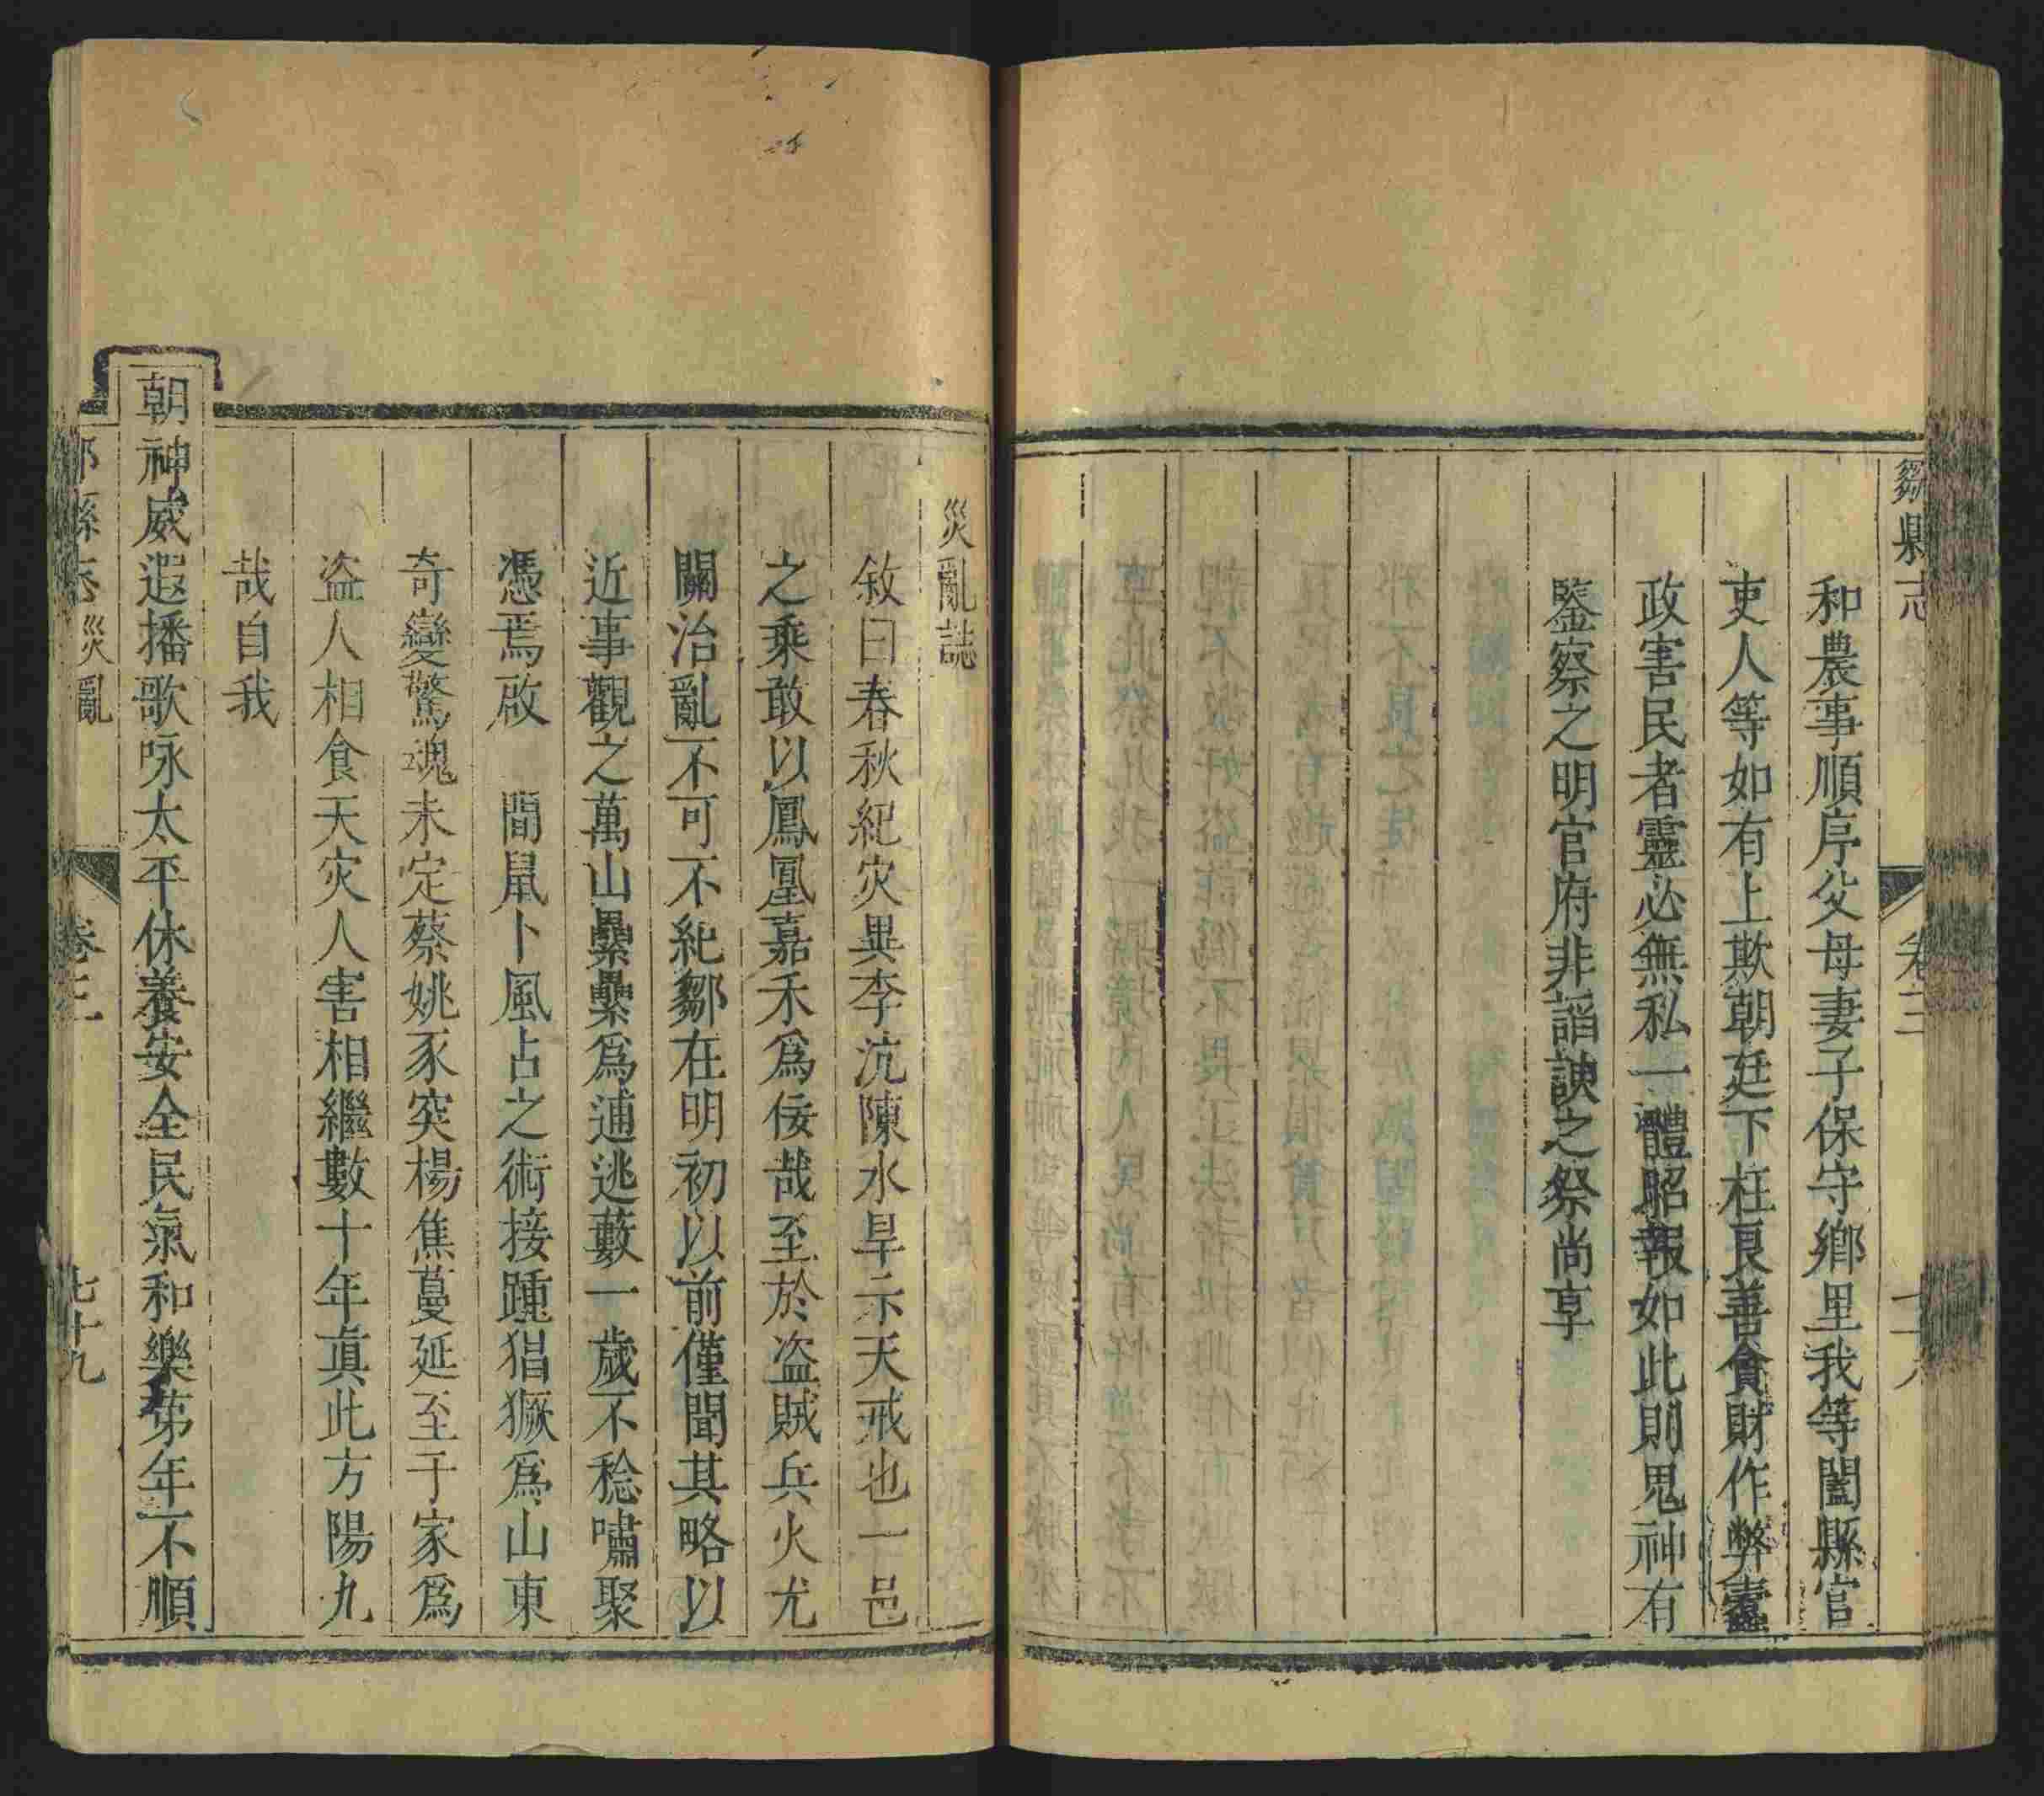 鄒縣志
卷三
和農事順序父母妻子保守鄉里我等闔縣官
吏人等如有上欺朝廷下枉良善貪財作弊蠹
政害民者靈必無私一體昭報如此則鬼神有
鑒察之明官府非諂諛之祭尚享
災亂誌
敘曰春秋紀灾異李沆陳水旱示天戒也一邑
之乘敢以鳳凰嘉禾爲佞哉至於盜賊兵火尤
關治亂不可不紀鄒在明初以前僅聞其略以
近事觀之萬山纍纍爲逋逃藪一歲不稔嘯聚
憑焉啟　間鼠卜風占之術接踵猖獗爲山東
奇變驚魂未定蔡姚豕突楊焦蔓延至于家爲
盜人相食天灾人害相繼數十年真此方陽九
哉自我
朝神威遐播歌咏太平休養安全民氣和樂第年不順
縣志
災亂
卷三
七十九